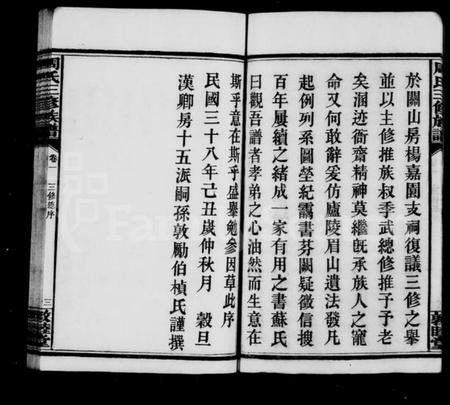 於關山房楊嘉園支祠復議三修之舉
並以主修推族叔季武總修推予予老
矣涸迹衙齋精神莫繼既承族人之寵
命又何敢辭爰仿廬陵眉山遺法發凡
起例列系圖塋紀靄書芬闕疑徵信搜
百年屢續之緒成一家有用之書蘇氏
曰觀吾譜者孝弟之心油然而生意在
斯乎意在斯乎盛舉勉參因草此序
民國三十八年己丑歲仲秋月 穀旦
漢卿房十五派嗣孫敦勵伯楨氏謹撰
周氏三修族譜
卷一
三修總序
三
敦睦堂